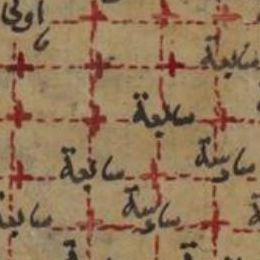 اولى
سابعة
سابعة
سادسة
سابعة
سادسة
سابعة